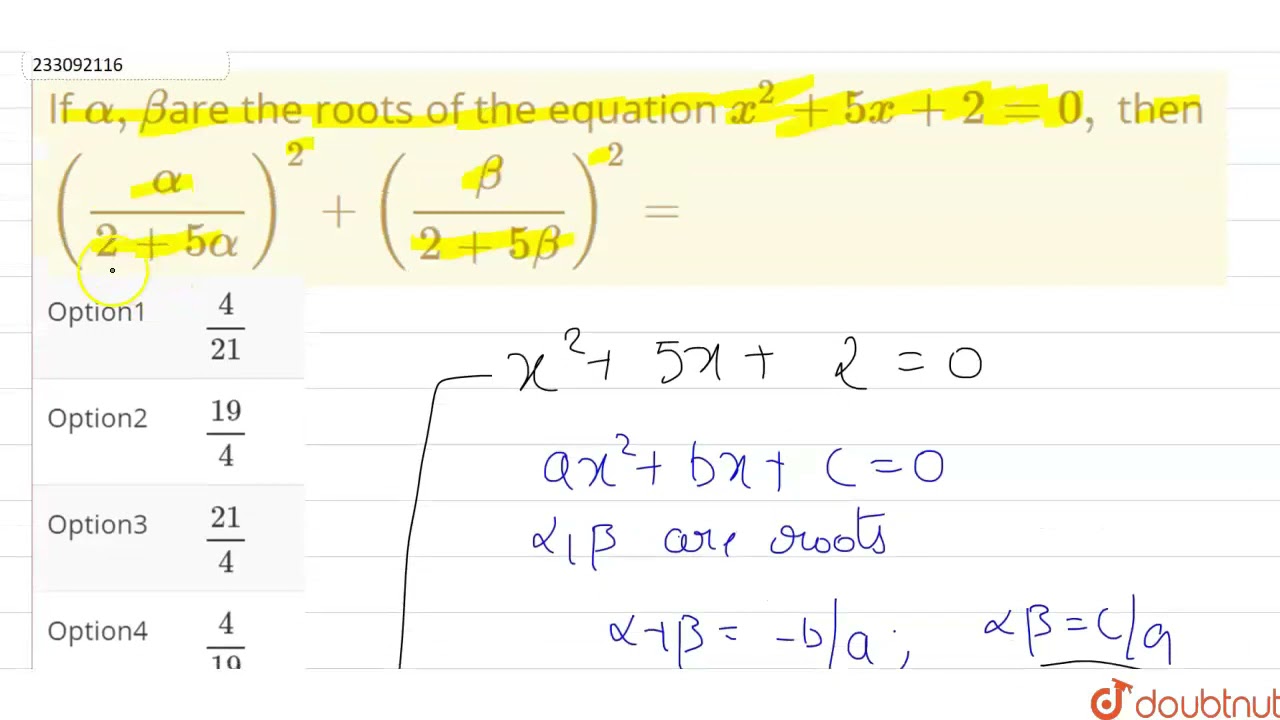 233092116
If α, βare the roots of the equation x² + 5x + 2 = 0, then
(α/(2 + 5α))² + (β/(2 + 5β))² =
Option1 4/21
Option2 19/4
Option3 21/4
Option4 4/19
x² + 5x + 2 = 0
ax² + bx + c = 0
α, β are roots
α+β = -b/a ; αβ = c/a
doubtnut